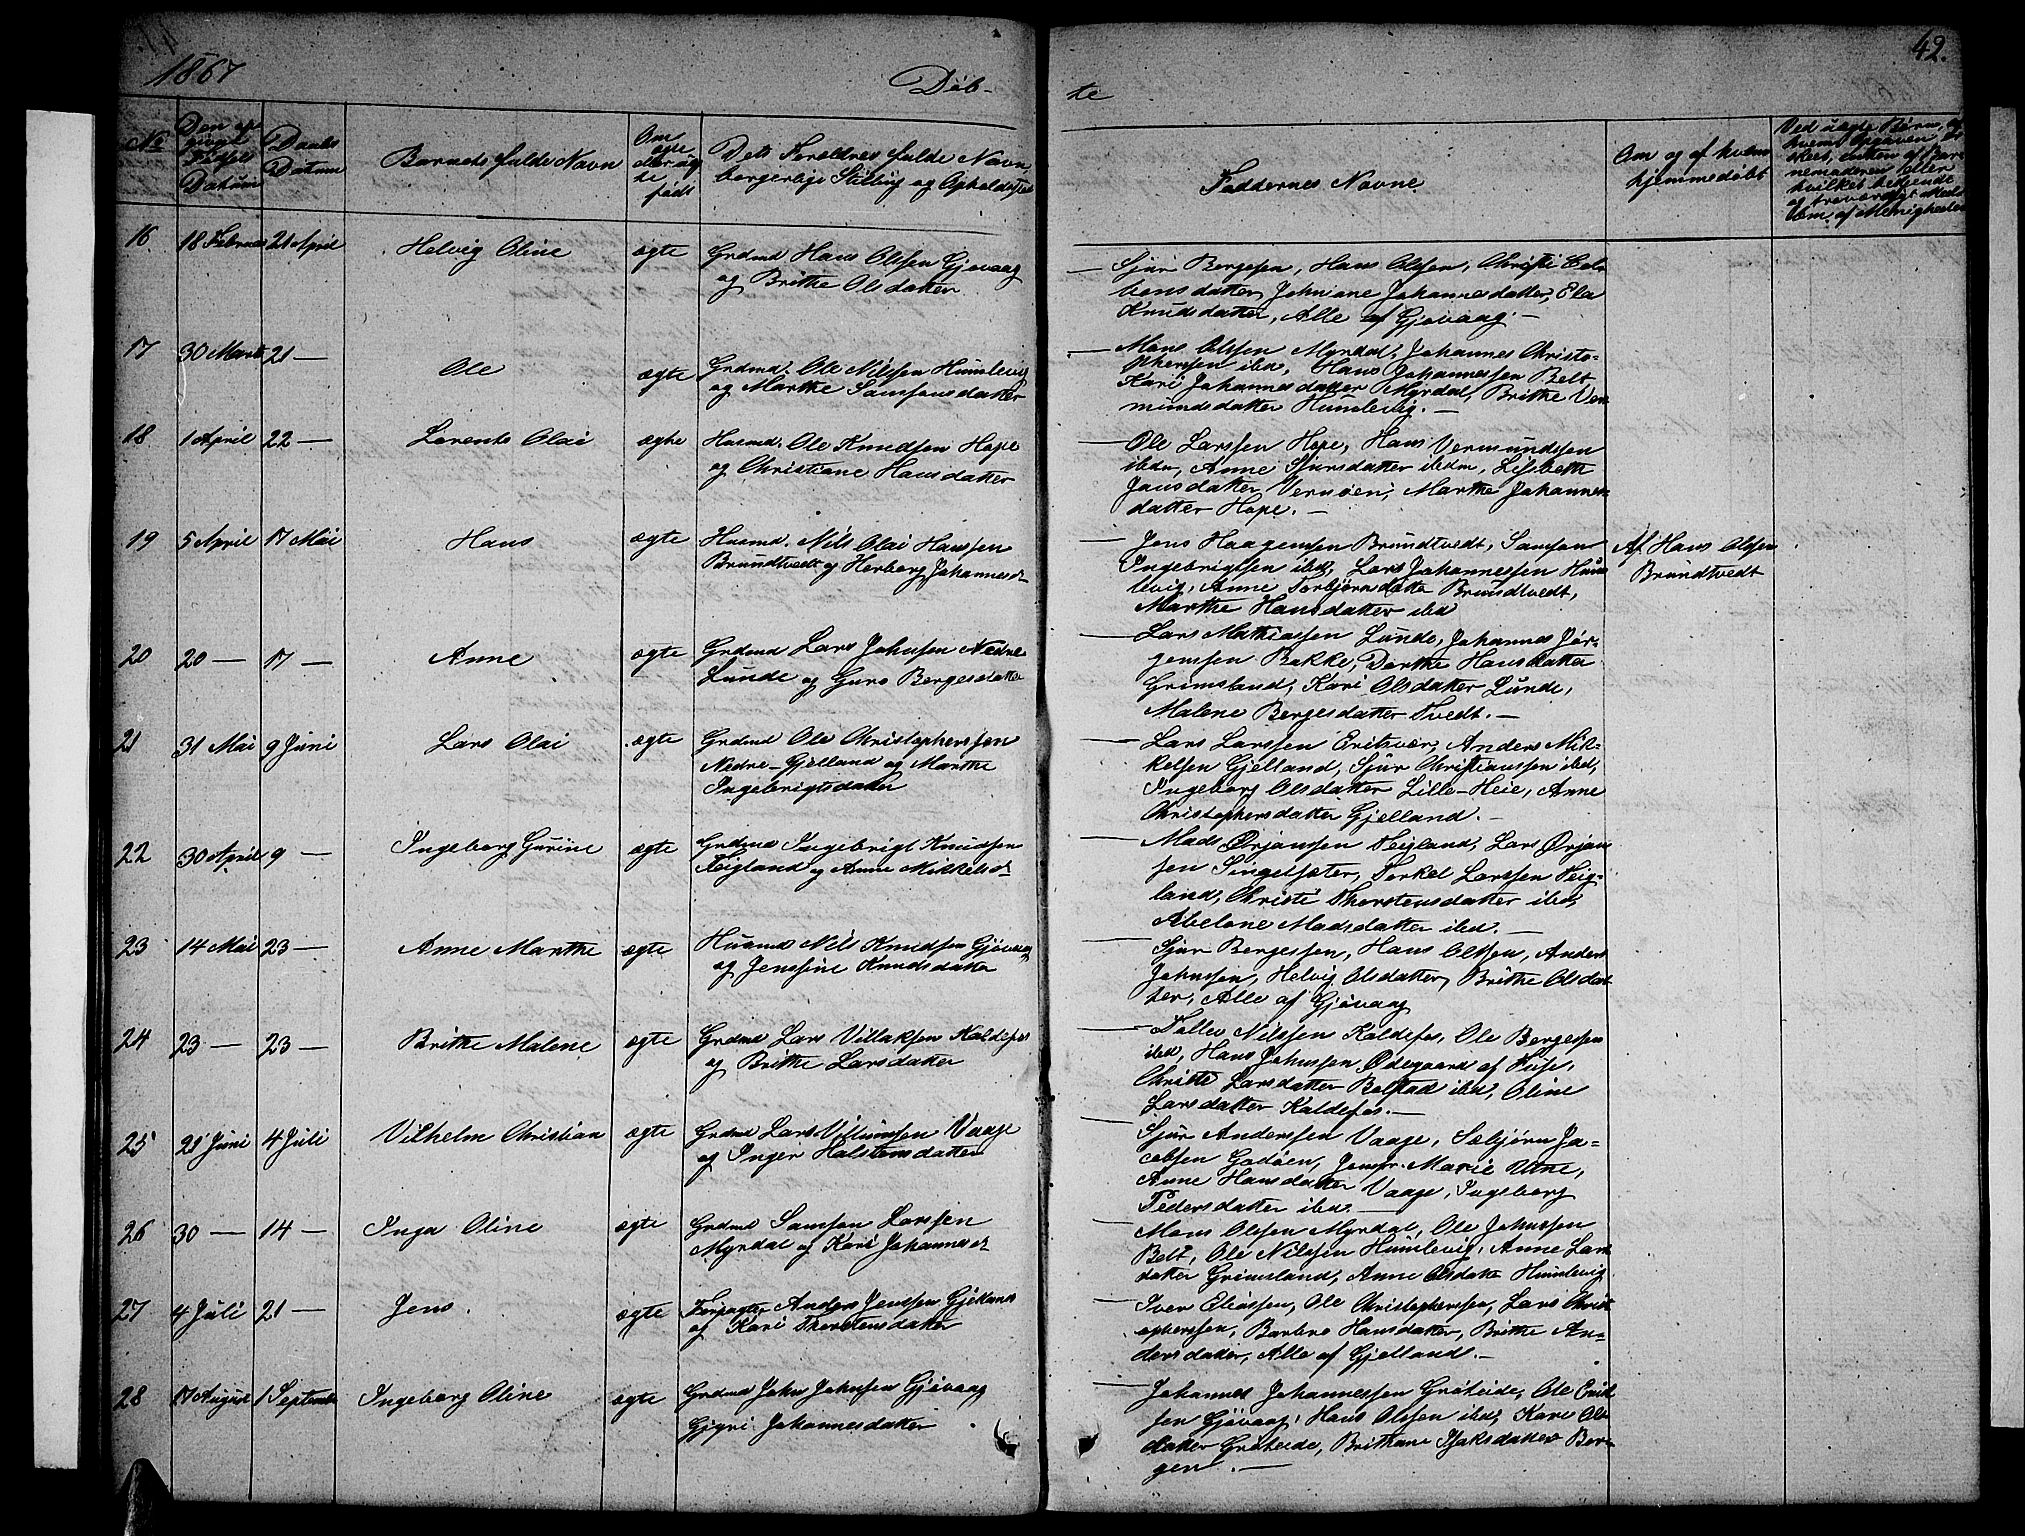 1867
Døb-
te
42.
No
Den opgivne Fødsels Datum
Daabs Datum
Barnets fulde Navn
Om ægte eller uægte født
Dets Forældres fulde Navn,
borgerlige Stilling og Opholdssted
Faddernes Navne
Om og af hvem
hjemmedøbt
Ved uægte Børn, af
hvem Opgaven er
skeet, enten af Bar-
nemoderen eller
hvilket bekjendt
og troværdigt Med-
lem af Menigheden
16 18 Februar 21 April Helvig Oline ægte Grdmd Hans Olsen Gjøvaag
og Brithe Olsdatter
— Sjur Bergesen, Hans Olsen, Christi
datter, Johanne Johannesdatter, Eli
Knudsdatter, Alle af Gjøvaag. —
17 30 Marts 21 — Ole ægte Grdmd. Ole Nilsen Humlevig
og Marthe Samsonsdatter
— Mons Olsen Myrdal, Johannes Christo-
phersen ibd, Hans Johannessen Belt
Kari Johannesdatter Myrdal, Brithe Ver-
mundsdatter Humlevig. —
18 1 April 22 — Lorents Olai ægte Husmd. Ole Knudsen Hope
og Christiane Hansdatter
— Ole Larssen Hope, Hans Vermundsen
ibdm, Anne Sjursdatter ibdm, Lisbeth
Jansdatter Vernøen, Marthe Johannes-
datter Hope. —
19 5 April 17 Mai Hans ægte Husmd. Nils Olai Hansen
Brundtvedt og Herborg Johannesd-
— Jens Haagensen Brundtvedt, Samson
Ingebrigtsen ibd, Lars Johannessen Hum-
levig, Anne Torbjørnsdatter Brundtvedt,
Marthe Hansdatter ibd
Af Hans Olsen
Brundtvedt
20 20 — 17 — Anne ægte Grdmd Lars Johnsen Nedre
Lunde og Guro Bergesdatter
— Lars Mathiassen Lunde, Johannes Jør-
gensen Bakke, Dorthe Hansdatter
Grimsland, Kari Olsdatter Lunde,
Malene Bergesdatter Tvedt. —
21 31 Mai 9 Juni Lars Olai ægte Grdmd Ole Christophersen
Nedre-Gjelland og Marthe
Ingebrigtsdatter
— Lars Larssen Eritsvær, Anders Mik-
kelsen Gjelland, Sjur Christiansen ibd,
Ingeborg Olsdatter Lille-Heie, Anne
Christophersdatter Gjelland. —
22 30 April 9 — Ingeborg Gurine ægte Grdmd Ingebrigt Knudsen
Teigland og Anne Mikkelsd-
— Mads Ørjansen Teigland, Lars Ørjan-
sen Singelsæter, Torkel Larssen Teig-
land, Christi Thorstensdatter ibd,
Abelone Madsdatter ibd. —
23 14 Mai 23 — Anne Marthe ægte Husmd Nils Knudsen Gjøvaag
og Jensine Knudsdatter
— Sjur Bergessen, Hans Olsen, Anders
Johnsen, Helvig Olsdatter, Brithe Olsdat-
ter, Alle af Gjøvaag
24 23 — 23 — Brithe Malene ægte Grdmd Lars Villaksen Kaldefos
og Brithe Larsdatter
— Tollev Nilssen Kaldefos, Ole Bergessen
ibd, Hans Johnsen Ødegaard af Fuse,
Christi Larsdatter Bolstad ibd, Oline
Larsdatter Kaldefos. —
25 21 Juni 4 Juli Vilhelm Christian ægte Grdmd Lars Villumsen Vaage
og Inger Halstensdatter
— Sjur Anderssen Vaage, Sæbjørn Ja-
cobsen Godøen, Jomfr. Marie Utne,
Anne Hansdatter Vaage, Ingeborg
Pedersdatter ibd. —
26 30 — 14 — Inga Oline ægte Grdmd Samson Larssen
Myrdal og Kari Johannesd-
— Mons Olsen Myrdal, Ole Johnsen
Belt, Ole Nilsen Humlevig, Anne Lars-
datter Grimsland, Anne Olsdatter Humlevig
27 4 Juli 21 — Jens. ægte Forpagter Anders Jenssen Gjelland
og Kari Thorstensdatter
— Iver Eliassen, Ole Christophersen, Lars Christ-
ophersen, Barbro Hansdatter, Brithe An-
dersdatter, Alle af Gjelland. —
28 17 August 1 September Ingeborg Oline ægte Grdmd John Johnsen Gjøvaag
Gjøri Johannesdatter
— Johannes Johannessen Grøteide, Ole Erik-
sen Gjøvaag, Hans Olsen ibd, Kari Ols-
datter Grøteide, Brithane Isaksdatter Ber-
gen. —